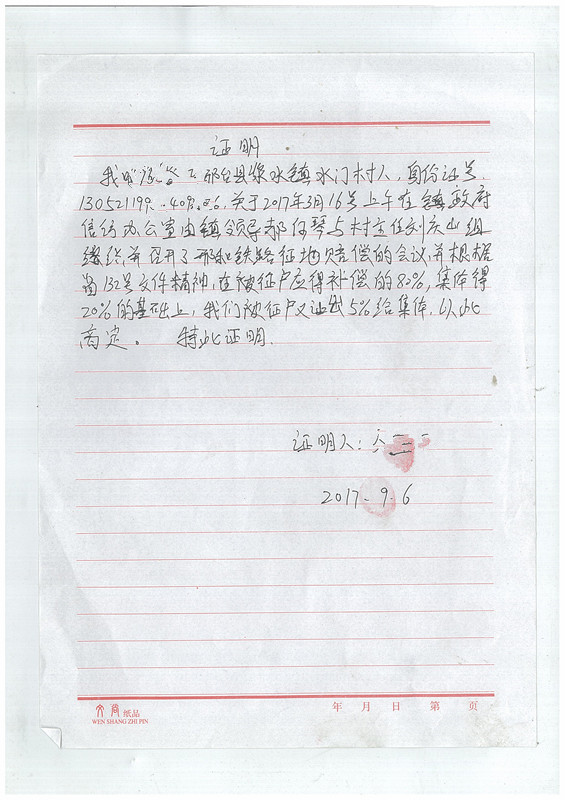 证明
我叫 邢台县浆水镇水门村人，身份证号
130521199 关于2017年3月16号上午在镇政府
信访办公室由镇领导郝何琴与村主任刘庆山组
织并召开了邢和铁路征地赔偿的会议，并根据
132号文件精神，在被征户应得补偿的80%，集体得
20%的基础上，我们被征户又让出5%给集体，以此
商定。 特此证明.
证明人：
2017.9.6
文尚纸品
WEN SHANG ZHI PIN
年 月 日 第 页